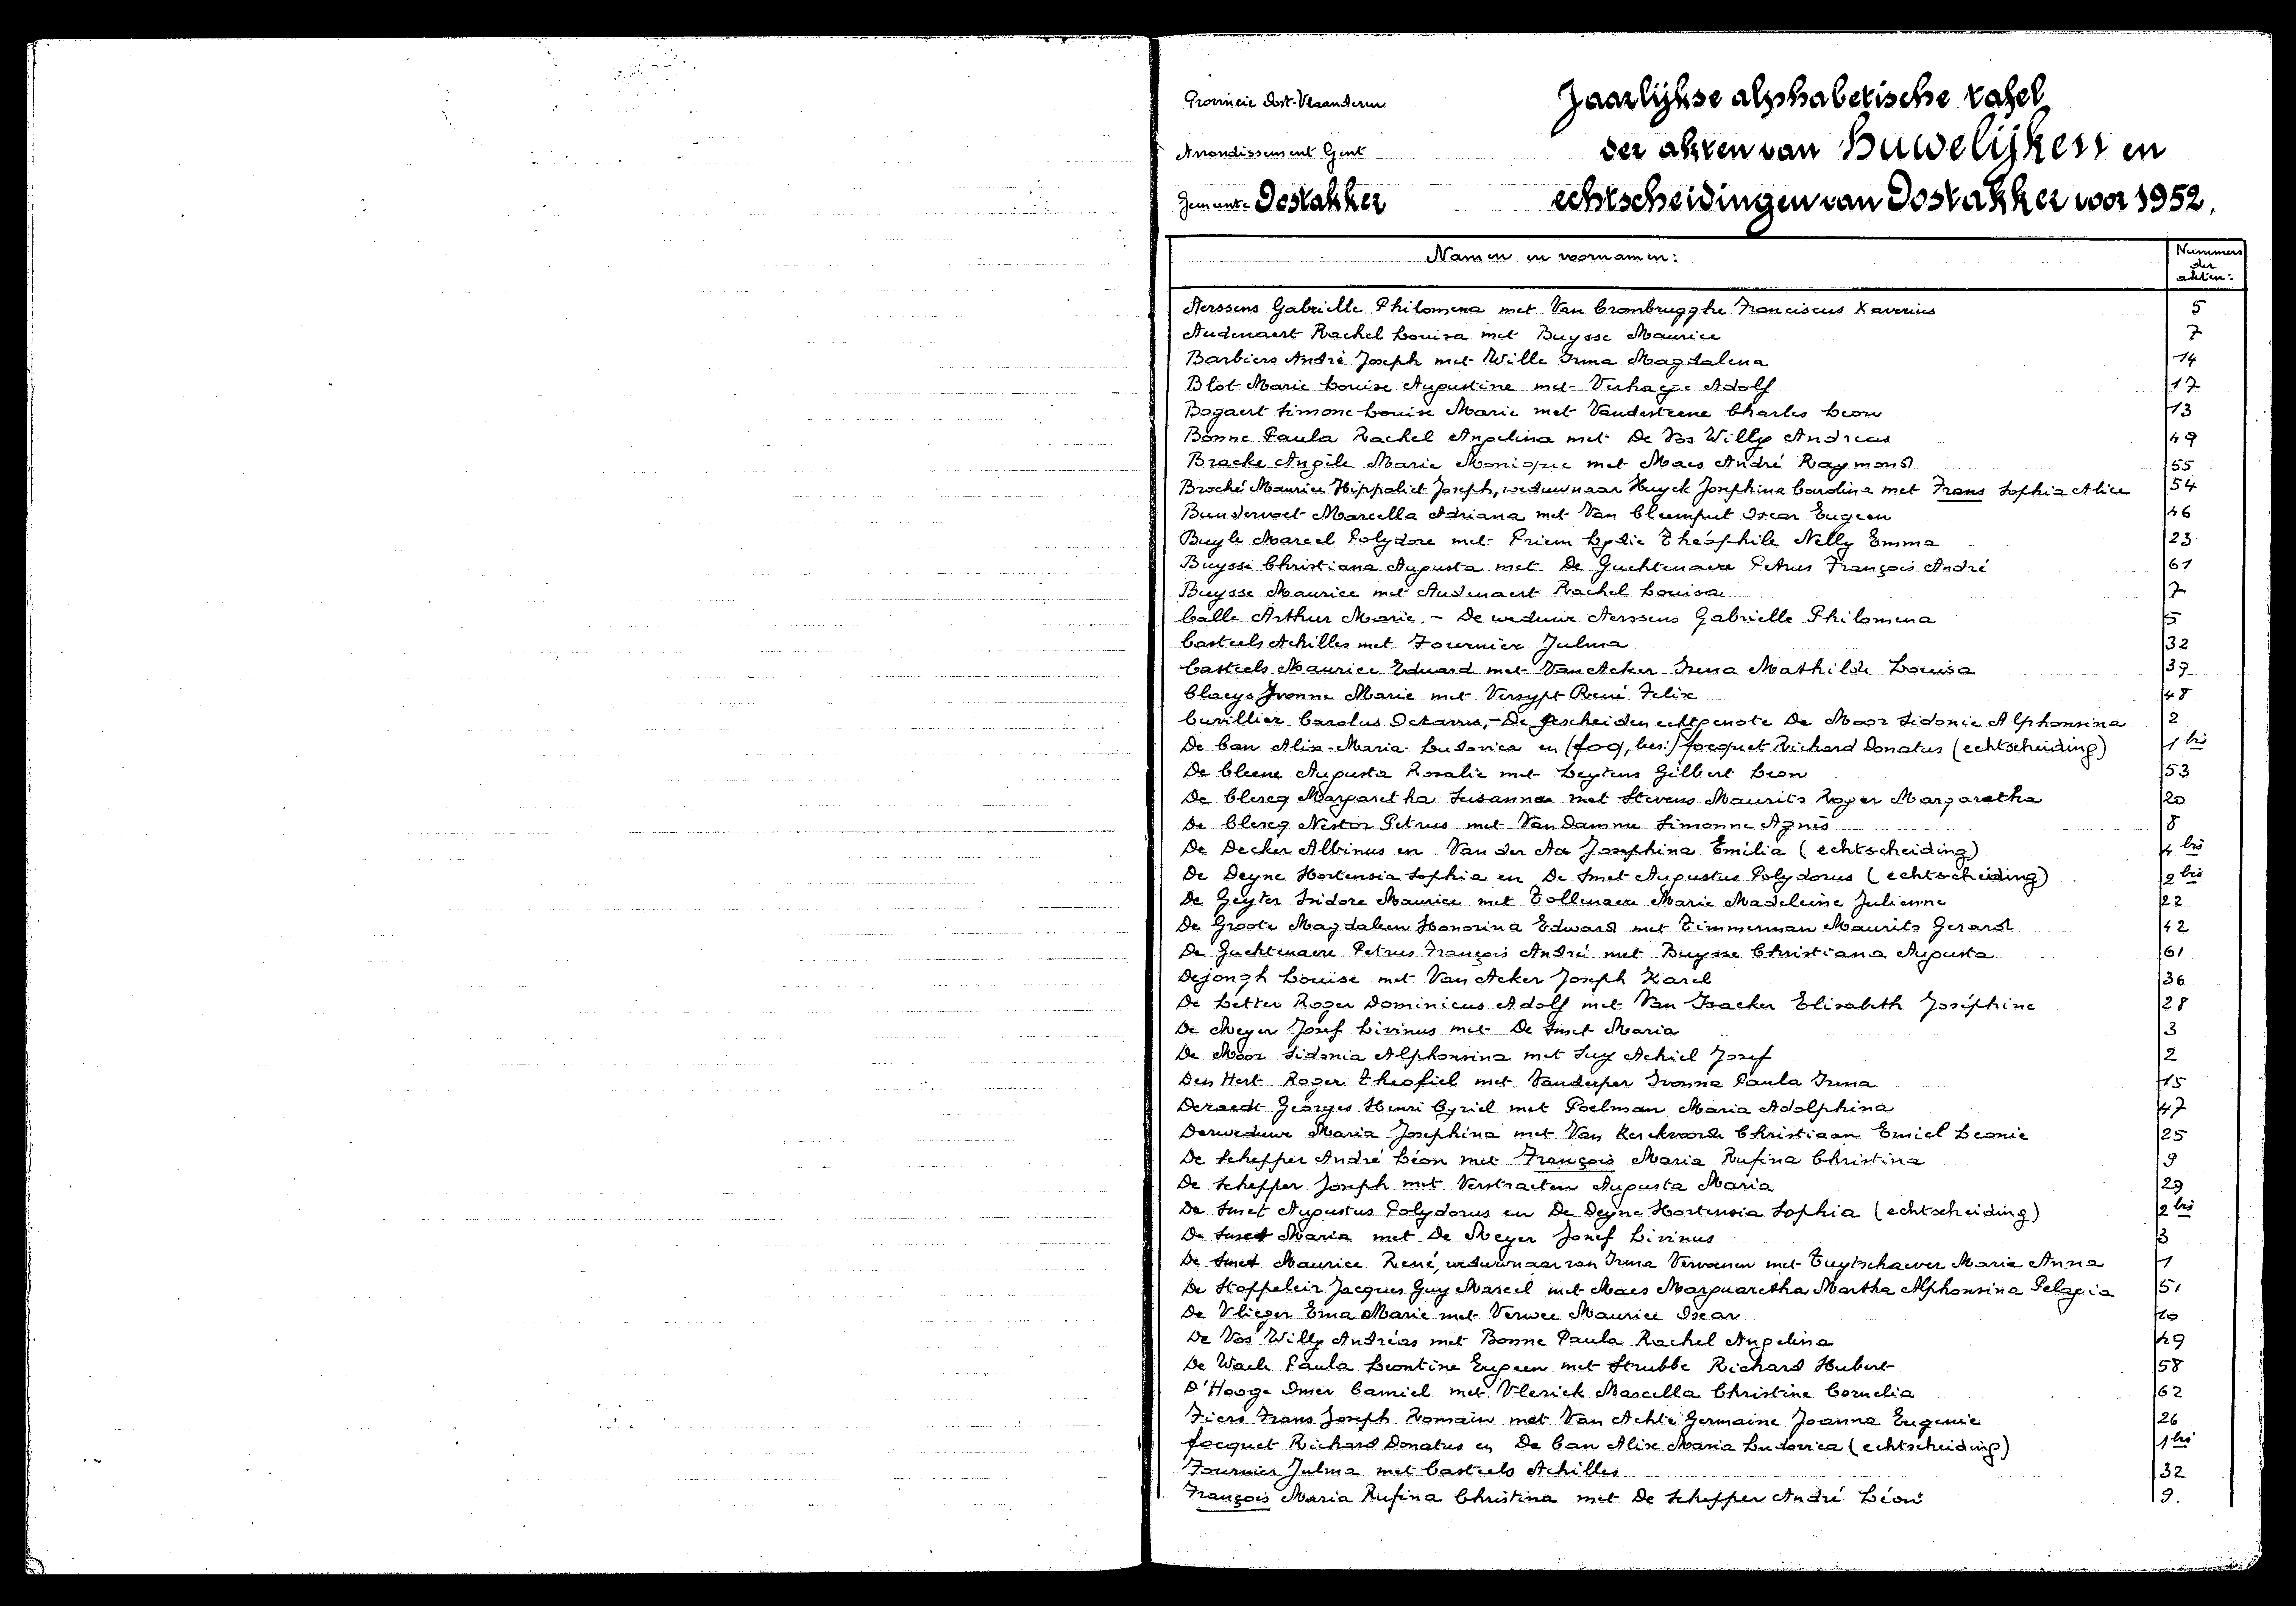 Provincie Oost-Vlaanderen
Arrondissement Gent
Gemeente Oostakker
Jaarlijkse alphabetische tafel
der akten van Huwelijken en
echtscheidingen van Oostakker voor 1952.
Namen en voornamen: Nummers der akten:
Aerssens Gabrielle Philomena met Van Crombrugghe Franciscus Xaverius 5
Audenaert Rachel Louisa met Buysse Maurice 7
Barbiers André Joseph met Wille Irma Magdalena 14
Blot Marie Louise Augustine met Verhaege Adolf 17
Bogaert Simone Louise Marie met Vandesteene Charles Leon 13
Bonne Paula Rachel Angelina met De Vos Willy Andreas 49
Bracke Angèle Marie Monique met Maes André Raymond 55
Broché Maurice Hippoliet Joseph, weduwnaar Huyck Josephina Carolina met Frans Sophia Alice 54
Bundervoet Marcella Adriana met Van Cleemput Oscar Eugeen 46
Buyle Marcel Polydore met Priem Lydie Théophile Nelly Emma 23
Buysse Christiana Augusta met De Guchtenaere Petrus François André 61
Buysse Maurice met Audenaert Rachel Louisa 7
Calle Arthur Marie. - De weduwe Aerssens Gabrielle Philomena 5
Casteels Achilles met Fournier Julma 32
Casteels Maurice Eduard met Van Acker Irena Mathilde Louisa 37
Claeys Yvonne Marie met Versypt René Felix 48
Cuvillier Carolus Octavus, - De gescheiden echtgenote De Moor Sidonie Alphonsina 2
De Can Alix Maria Ludovica en focquet Richard Donatus (echtscheiding) 1 bis
De Cleene Augusta Rosalie met Leytens Gilbert Leon 53
De Clercq Margaretha Susanna met Stevens Maurits Roger Margaretha 20
De Clercq Nestor Petrus met Van Damme Simonne Agnès 8
De Decker Albinus en Van der Aa Josephina Emilia (echtscheiding) 4 bis
De Deyne Hortensia Sophia en De Smet Augustus Polydorus (echtscheiding) 2 bis
De Geyter Isidore Maurice met Tollenaere Marie Madeleine Julienne 22
De Groote Magdaleen Honorina Edward met Timmerman Maurits Gerard 42
De Guchtenaere Petrus François André met Buysse Christiana Augusta 61
Dejongh Louise met Van Acker Joseph Karel 36
De Letter Roger Dominicus Adolf met Van Isacker Elisabeth Joséphine 28
De Meyer Josef Livinus met De Smet Maria 3
De Moor Sidonia Alphonsina met Suy Achiel Josef 2
Den Hert Roger Theofiel met Vandeper Ivonna Paula Irma 15
Deraedt Georges Henri Cyriel met Poelman Maria Adolphina 47
Derweduwe Maria Josephina met Van Kerckvoorde Christiaan Emiel Leonie 25
De Schepper André Léon met François Maria Rufina Christina 9
De Schepper Joseph met Verstraeten Augusta Maria 29
De Smet Augustus Polydorus en De Deyne Hortensia Sophia (echtscheiding) 2 bis
De Smet Maria met De Meyer Josef Livinus 3
De Smet Maurice René, weduwnaar van Irma Vervaenen met Tuytschaever Marie Anna 1
De Stoppeleir Jacques Guy Marcel met Maes Marguaretha Martha Alphonsina Pelagia 51
De Vlieger Erna Marie met Verwee Maurice Oscar 10
De Vos Willy Andréas met Bonne Paula Rachel Angelina 49
De Waele Paula Leontine Eugeen met Strubbe Richard Hubert 58
D'Hooge Omer Camiel met Vlerick Marcella Christine Cornelia 62
Fiers Frans Joseph Romain met Van Achte Germaine Joanna Eugenie 26
focquet Richard Donatus en De Can Alix Maria Ludovica (echtscheiding) 1 bis
Fournier Julma met Casteels Achilles 32
François Maria Rufina Christina met De Schepper André Léon 9.